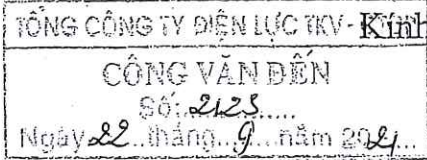 TỔNG CÔNG TY ĐIỆN LỰC TKV - Kính
CÔNG VĂN ĐẾN
Số: 2123
Ngày 22 tháng 9 năm 2021